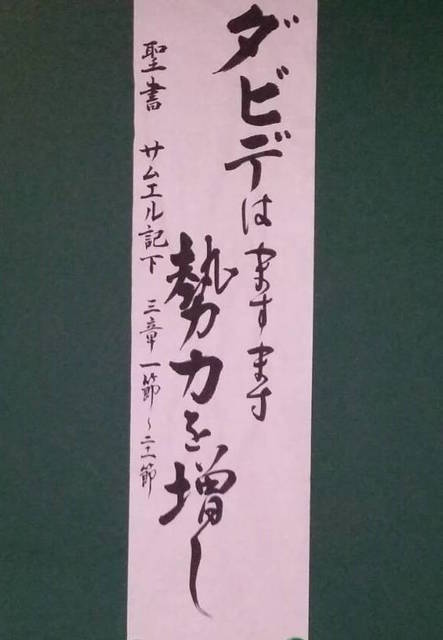 ダビデはますます
勢力を増し
聖書 サムエル記下 三章一節~二十一節